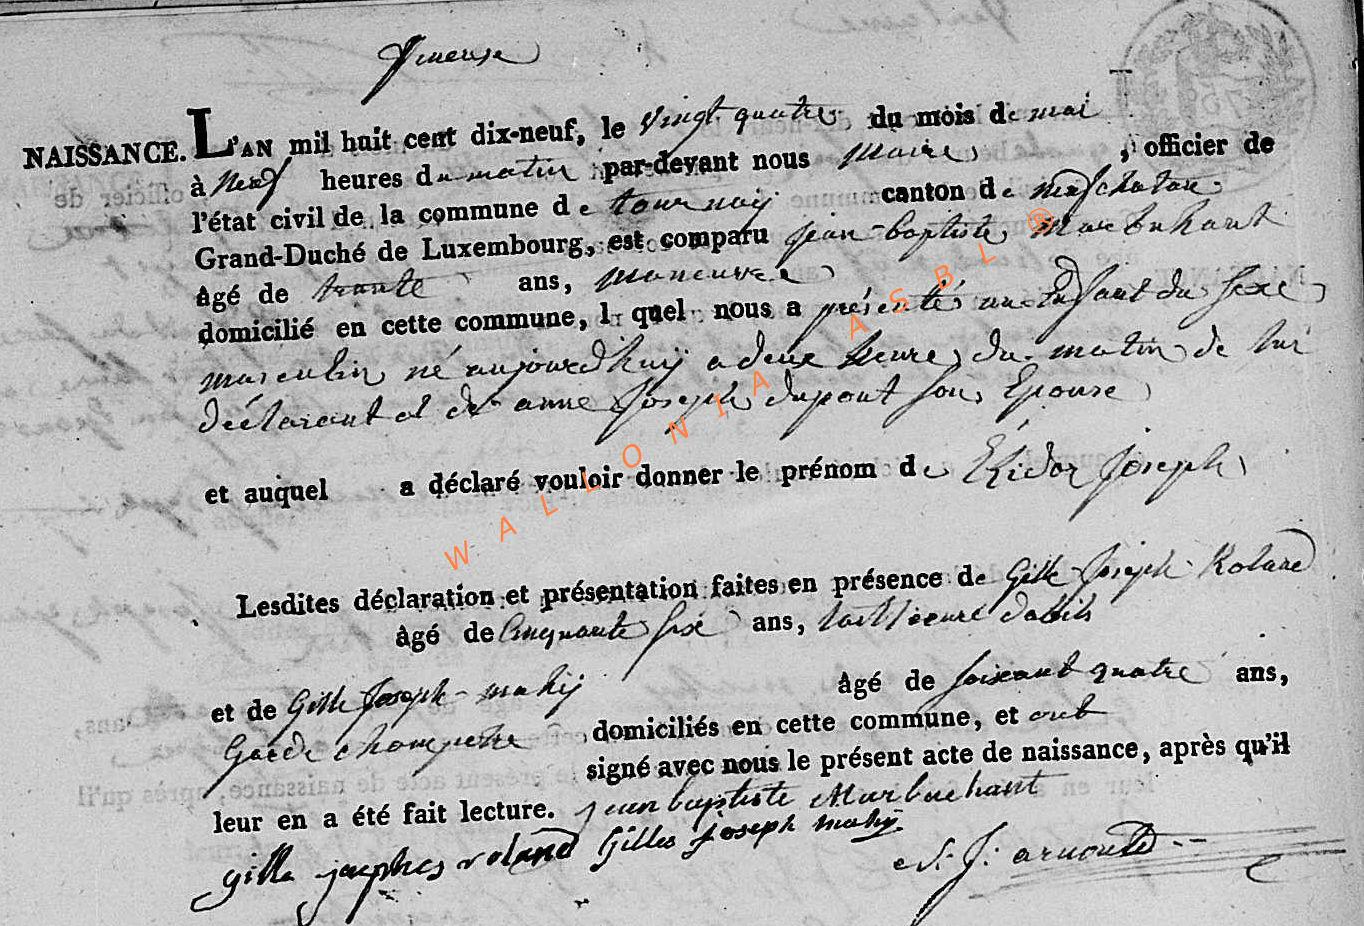 NAISSANCE. L'AN mil huit cent dix-neuf, le vingt quatre du mois de mai
à neuf heures du matin par-devant nous maire, officier de
l'état civil de la commune de tournay canton de neufchateau
Grand-Duché de Luxembourg, est comparu jean baptiste Marbuhant
âgé de trante ans, maneuvre
domicilié en cette commune, lequel nous a présenté un Enfant du sexe
masculin né aujourd'huij a deux heure du matin de lui
déclarant et de anne Joseph dupont son Epouse
et auquel a déclaré vouloir donner le prénom de Elidor Joseph
Lesdites déclaration et présentation faites en présence de Gille Joseph Roland
âgé de Cinquante six ans, d'abits
et de Gille Joseph mahij âgé de soixant quatre ans,
Garde champetre domiciliés en cette commune, et ont
signé avec nous le présent acte de naissance, après qu'il
leur en a été fait lecture. jean baptiste Marbuehant
gille josephes roland Gilles joseph mahij
WALLONIA ASBL ®